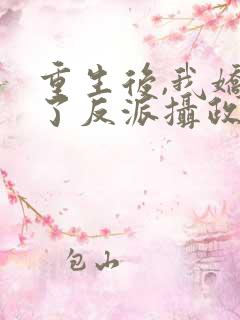 重生後,我嬌
了反派攝政
包山